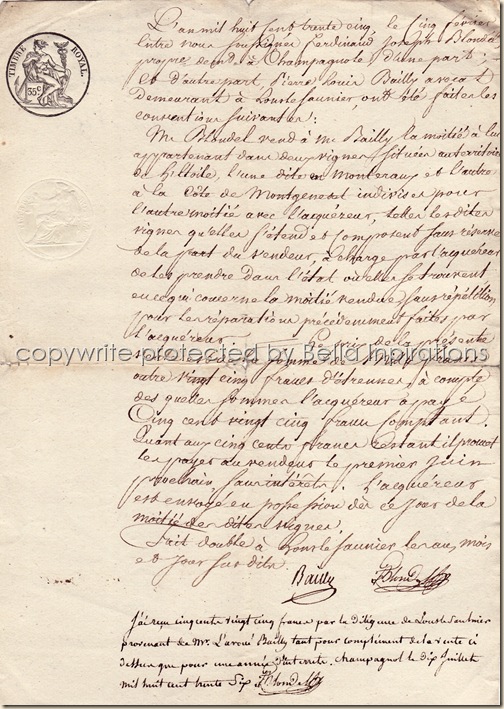 TIMBRE ROYAL
35c
L'an mil huit Cent trente cinq le Cinq février
Entre nous soussignés Ferdinand Joseph Blondel
propre demt à Champagnole d'une part
Et d'autre part, Pierre Louis Bailly avocat
demeurant à Lonslesaunier, ont été faites les
conventions suivantes :
Mr Blondel vend à Mr Bailly la moitié à lui
appartenant dans deux vignes situées au territoire
de L'Etoile, l'une dite en et l'autre
à la Côte de Montgenest indivises pour
l'autre moitié avec l'acquéreur, telles les dites
vignes qu'elles s'étend et composent sans réserve
de la part du vendeur, à charge par l'acquéreur
de les prendre dans l'état où elles se trouvent
en ce qui concerne la moitié vendue sans répétition
pour les réparations précédemment faites par
l'acquéreur. Le prix de la présente
outre vingt cinq francs d'étrennes, à compte
des quelles sommes l'acquéreur a payé
Cinq cent vingt cinq francs comptant.
Quant aux cinq cents francs restant il promet
les payer au vendeur le premier Juin
prochain sans intérêts. L'acquéreur
est envoyé en possession dès ce jour de la
moitié des dites vignes.
Fait double à Lonslesaunier les an, mois
et jour sus dits.
Bailly Fd Blondel
J'ai reçu cinquente vingt cinq francs par la diligence de Lonslesaulnier
provenant de Mr. L'avoué Bailly tant pour complément de la vente ci
dessus que pour une année d'interrets. champagnol le dix Juillet
mil huit cent trente Six Fd Blondel
copywrite protected by Bella Inpirations